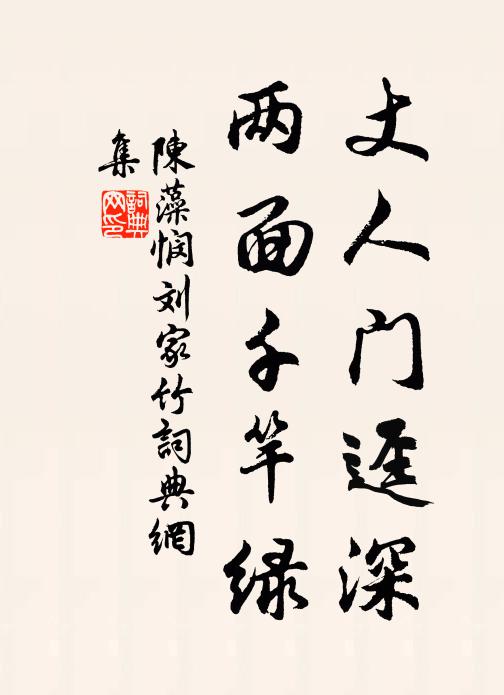 丈人门迳深
两面千竿绿
陳藻悯刘家竹詞典網
集
詞典
网印